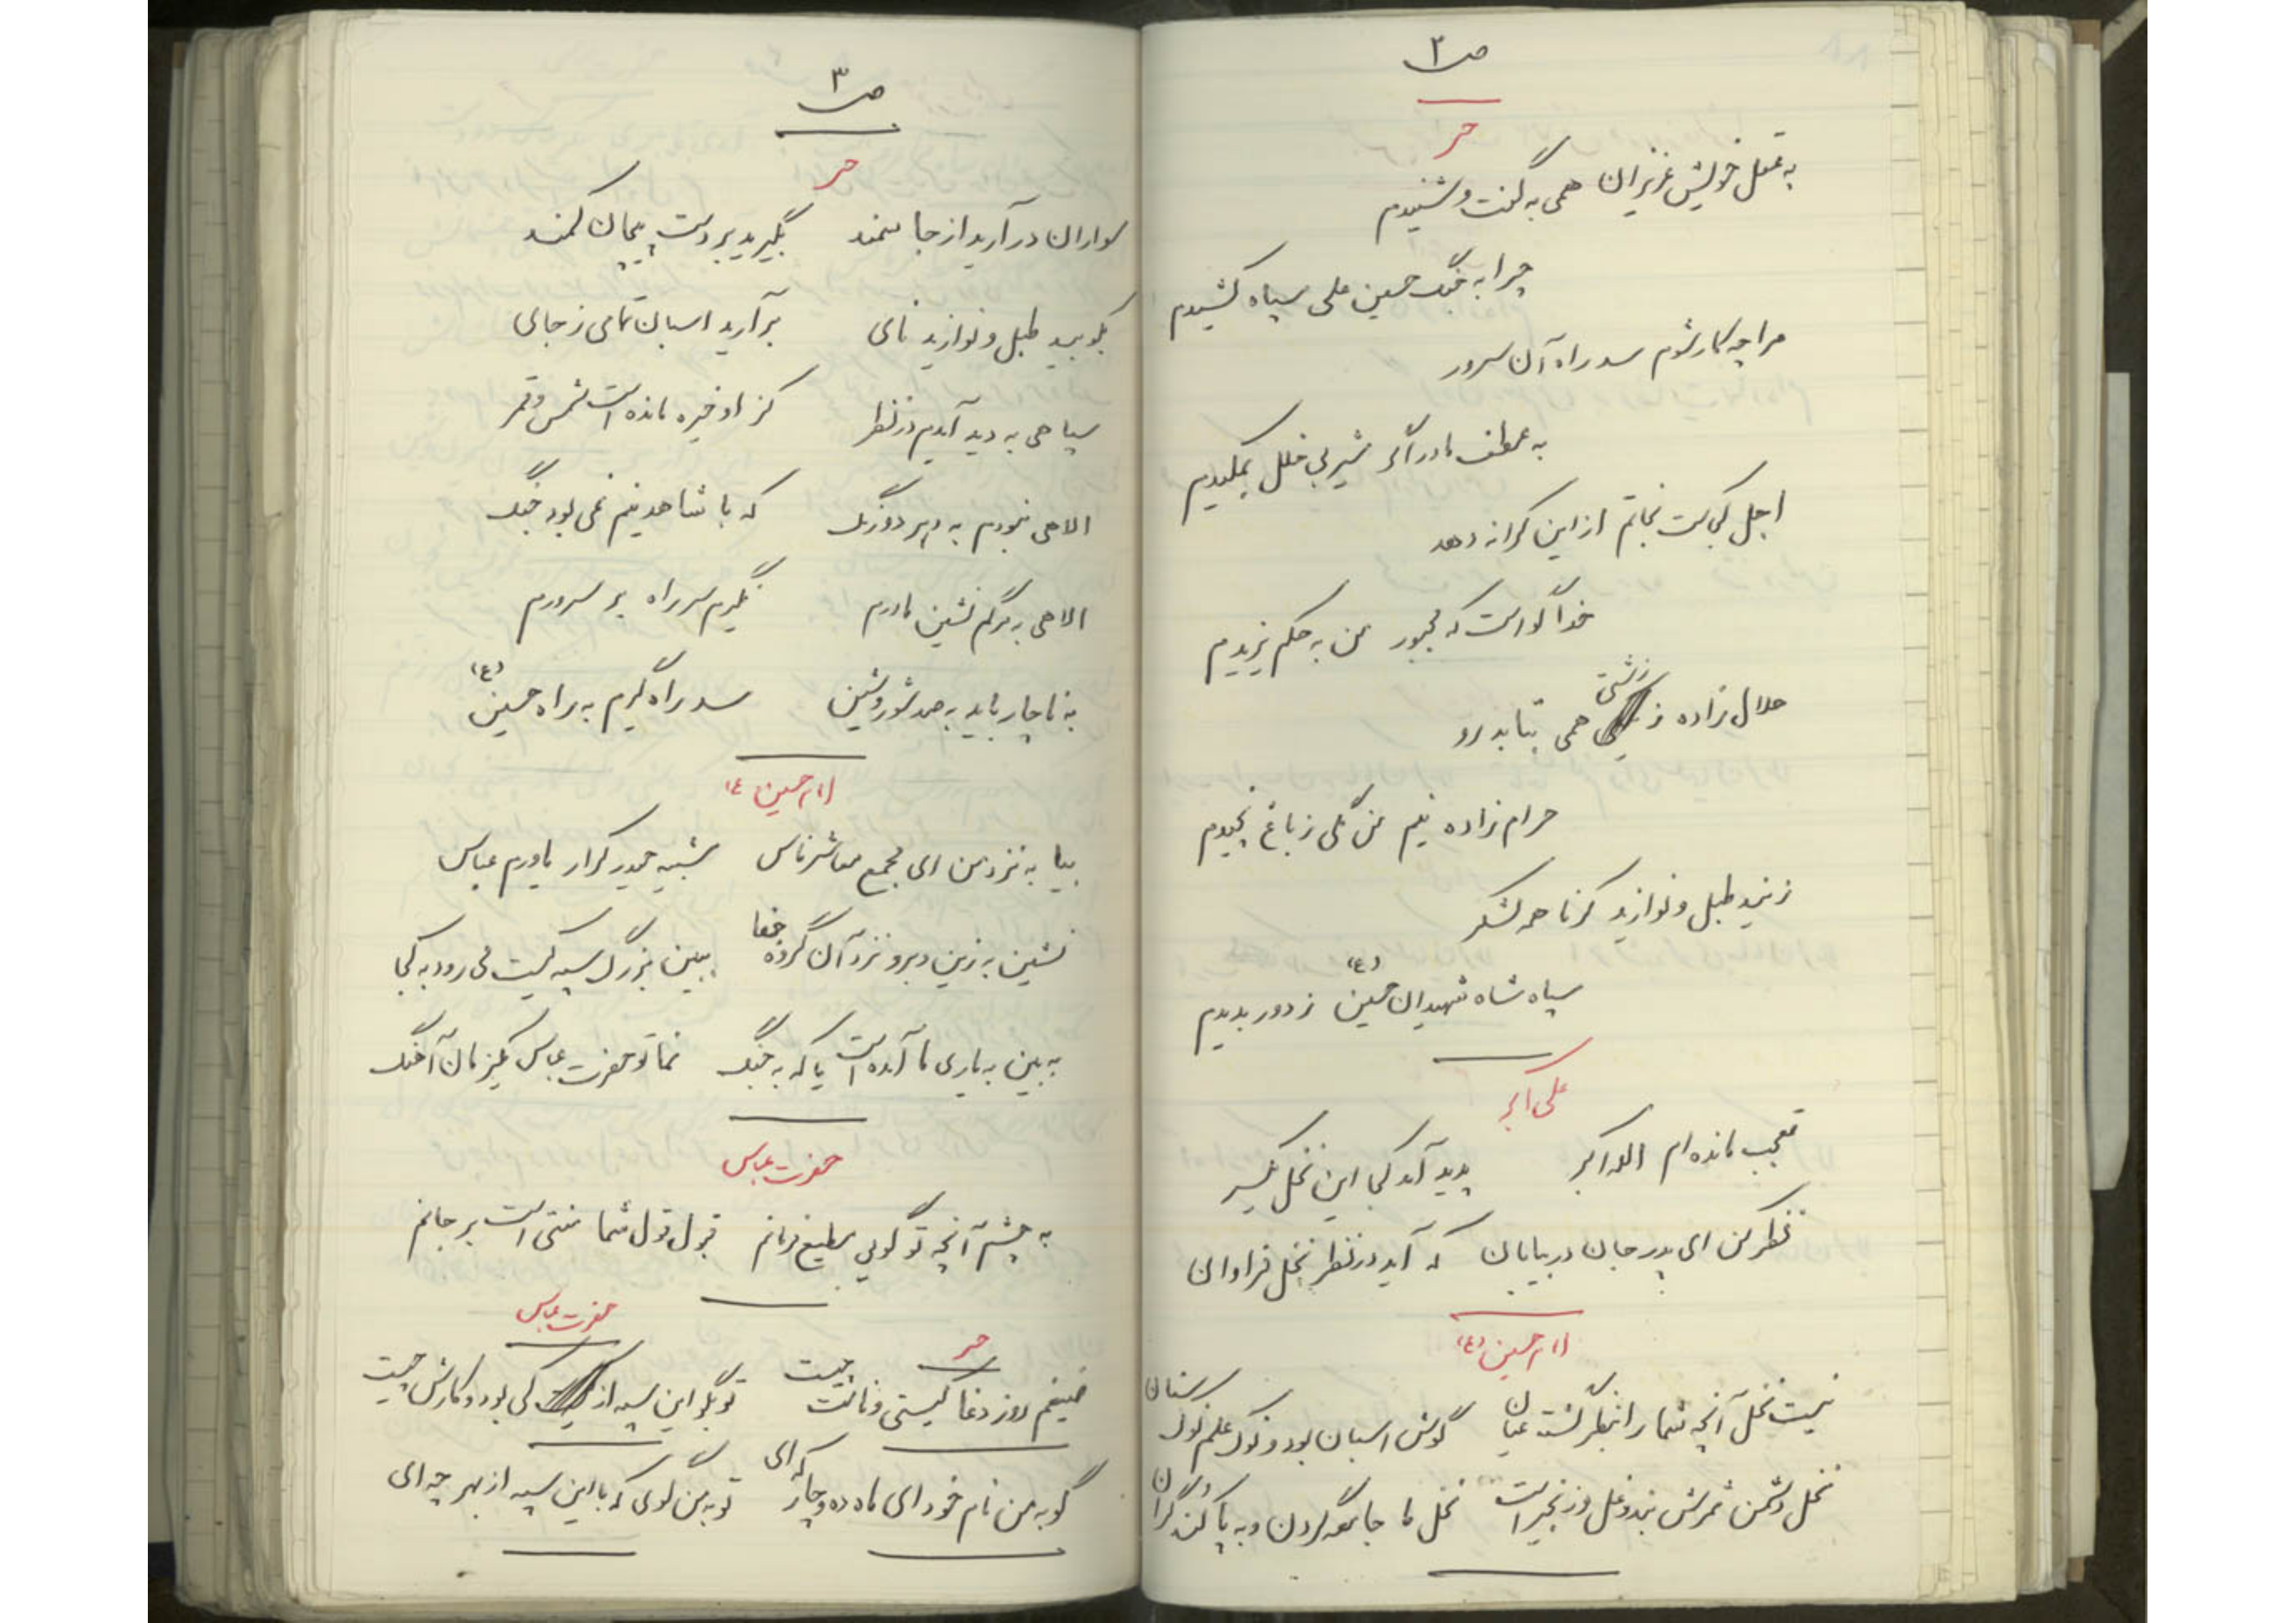 ص ۲
حر
به قتل خویش عزیزان همی به گفت و شنیدم
چرا به جنگ حسین علی سپاه کشیدم
مرا چه کار شوم سد راه آن سرور
به عطف مادر اگر شیر بی خلل بمکیدم
اجل کجاست نجاتم از این کرانه دهد
خدا گواست که مجبور من به حکم یزیدم
حلال زاده ز زشتی همی بتابد رو
حرام زاده نیم من گلی ز باغ نچیدم
زنید طبل و نوازید کرنا همه لشکر
سپاه شاه شهیدان حسین (ع) ز دور بدیدم
علی اکبر
تعجب مانده ام الله اکبر پدید آمد کجا این نخل یکسر
نظر کن ای پدر جان در بیابان که آید در نظر نخل فراوان
امام حسین (ع)
نیست نخل آنچه شما را به نظر گشت عیان گوش اسبان بود و نوک علم نوک سنان
نخل دشمن ثمرش بند و غل و زنجیر است نخل ما جامعه گردن و به پا کند گران
ص ۳
حر
سواران در آرید از جا سمند بگیرید بر دست پیچان کمند
بکوبید طبل و نوازید نای بر آرید اسبان تمامی ز جای
سپاهی به دید آیدم در نظر کز او خیره مانده است شمس و قمر
الاهی نبودم به دهر دو رنگ که با شاه دینم نمی بود جنگ
الاهی به مرگم نشین مادرم نگیرم سر راه بر سرورم
به ناچار باید به صد شور و شین سد راه گیرم به راه حسین (ع)
امام حسین (ع)
بیا به نزد من ای مجمع معاشر ناس شبیه حیدر کرار یاورم عباس
نشین به زین و برو نزد آن گروه جفا ببین بزرگ سپه کیست می رود به کجا
به بین به یاری ما آمده است یا که به جنگ نما تو حضرت عباس یکزمان آهنگ
حضرت عباس
به چشم آنچه تو گویی مطیع فرمانم قبول قول شما منتی است بر جانم
حر
ضیغم روز دغا کیستی و نامت چیست
حضرت عباس
تو بگو این سپه از کی بود و کارش چیست
گو به من نام خود ای ماه ده و چار که ای تو به من گوی که با این سپه از بهر چه ای